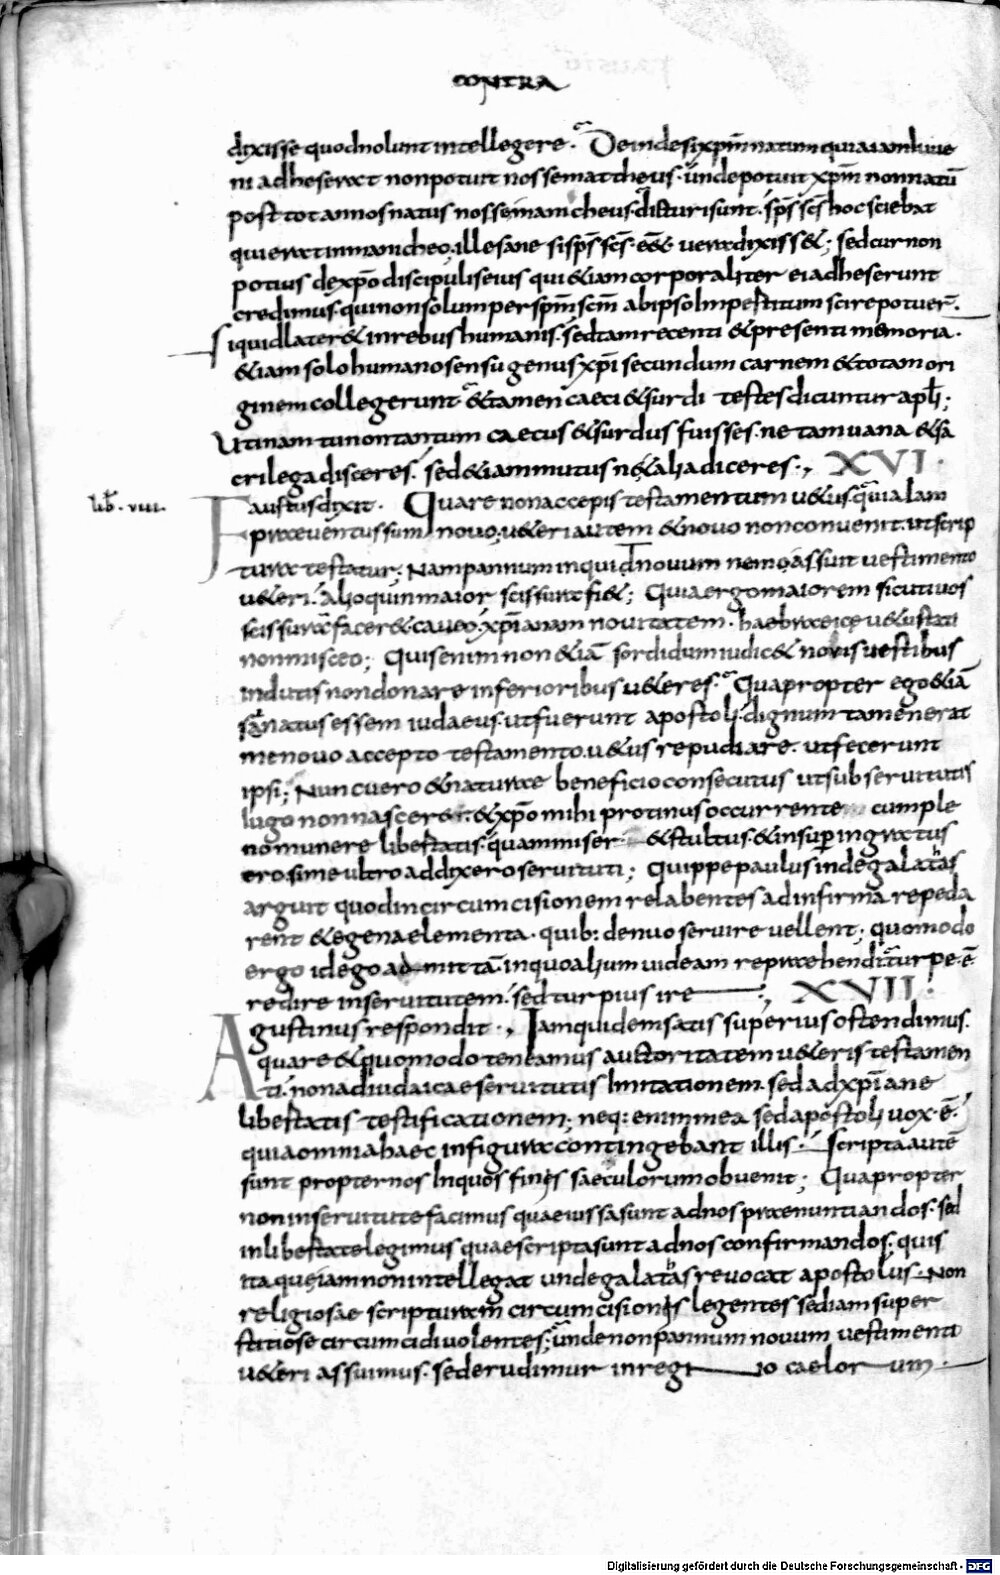 CONTRA
dixisse quod nolunt intellegere. Deinde si xp̄m natum quia iam luue
ni adheserat non potuit nosse mattheus. unde potuit xp̄m non natū
post tot annos natus nosse manicheus. dicturi sunt. sp̄s sc̄s hoc sciebat
qui erat in manicheo; ille sane si sp̄s sc̄s eēt uera dixisset; sed cur non
potius de xp̄o discipulis eius qui etiam corporaliter ei adheserunt
credimus. qui non solum per sp̄m sc̄m ab ipso impertitum scire potuer̄.
Si quid lateret in rebus humanis. sed tam recenti et presenti memoria.
etiam solo humano sensu genus xp̄i secundum carnem et totam ori
ginem collegerunt. et tamen caeci et surdi testes dicuntur apl̄i;
Utinam tu non tantum caecus et surdus fuisses. ne tam uana et sa
crilega disceres. sed etiam mutus ne talia diceres., XVI.
lib̄. VIII.
Faustus dixit. Quare non accepis testamentum uetus. quia iam
praeuentus sum nouo; ueteri autem et nouo non conuenit. ut scrip
tura testatur; Nam pannum inquid nouum nemo assuit uestimento
ueteri. Alioquin maior scissura fiet; Quia ergo maiorem sicut iuos
scissuram facere caueo. xp̄ianam nouitatem. haebraicę uetustati
non misceo; Quis enim non etiā sordidum iudicet nouis uestibus
indutis non donare inferioribus ueteres. Quapropter ego etiā
si natus essem iudaeus. ut fuerunt apostoli. dignum tamen erat
me nouo accepto testamento. uetus repudiare. ut fecerunt
ipsi; Nunc uero et naturae beneficio consecutus ut sub seruitutis
iugo non nascerer. et xp̄o mihi protinus occurrente cum ple
no munere libertatis. quam miser et stultus. et insup̄ ingratus
ero. si me ultro addixero seruituti; Quippe paulus inde galatas
arguit quod in circumcisionem relabentes ad infirma repeda
rent et egena elementa. quib: denuo seruire uellent; quomodo
ergo id ego admittā. in quo alium uideam reprachendi. turpe ē
redire in seruitutem. sed turpius ire ; XVII.
Agustinus respondit., Iam quidem satis superius ostendimus.
quare et quomodo teneamus auctoritatem ueteris testamen
ti. non ad iudaicae seruitutis imitationem. sed ad xp̄iane
libertatis testificationem; neq: enim mea sed apostoli uox ē.
quia omnia haec in figura contingebant illis. Scripta autē
sunt propter nos in quos finis saeculorum obuenit; Quapropter
non in seruitute facimus quae iussa sunt ad nos praenuntiandos. sed
in libertate legimus quae scripta sunt ad nos confirmandos; quis
itaque iam non intellegat unde galatas reuocat apostolus. Non
religiosae scripturam circumcisionis legentes sed iam super
stitiose circumcidi uolentes; unde non pannum nouum uestimento
ueteri assuimus. sed erudimur in regno caelorum.
Digitalisierung gefördert durch die Deutsche Forschungsgemeinschaft - DFG